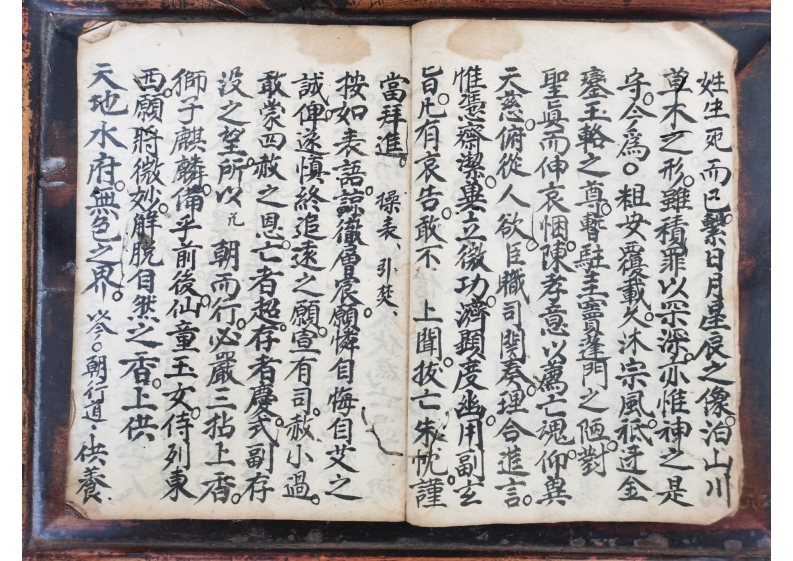 姓生死而已繫日月星辰之像泊山川
草木之形雖積罪以深深亦惟神之是
守今為〇粗安覆載久沐宗風祗迓金
鑾玉輅之尊暫駐圭竇蓬門之陋對
聖眞而伸哀悃陳孝意以薦亡魂仰異
天慈俯從人欲臣職司關奏理合進言
惟憑齋潔畢立微功濟顕度幽用副玄
旨凡有哀告敢不 上聞拔亡朱忱謹
當拜進 操表、引奘、
按如表語諒徹層宸願憐自悔自艾之
誠俾遂慎終追遠之願宣有司赦小過
敢蒙四赦之恩亡者超存者慶式副存
没之望所以元 朝而行必嚴三拈上香
獅子麒麟備乎前後仙童玉女侍列東
西願將微妙解脫自然之香上供
天地水府無色之界 以今〇朝行道、供養